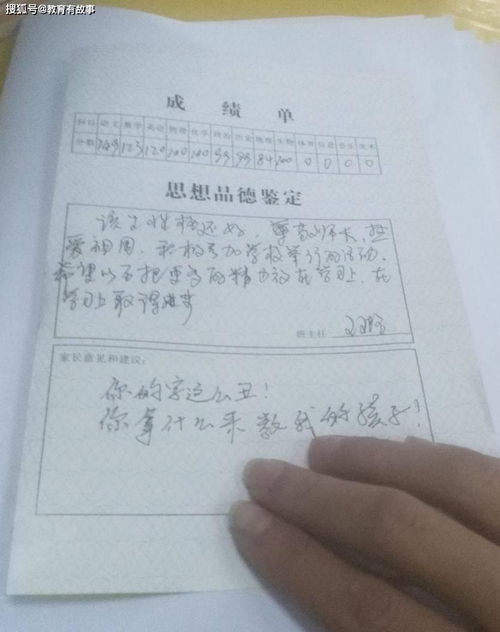 搜狐号@教育有故事
成 绩 单
科目 语文 数学 英语 物理 化学 政治 历史 地理 生物 体育 信息 音乐 美术
分数 123 120 100 100 99 99 84 100 0 0 0 0
思想品德鉴定
该生性格还好，尊敬师长，热
爱祖国，积极参加学校举行的活动，
希望以后把更多的精力放在学习上，在
学习上取得进步
班主任
家长意见和建议：
你的字这么丑！
你拿什么来教我的孩子！